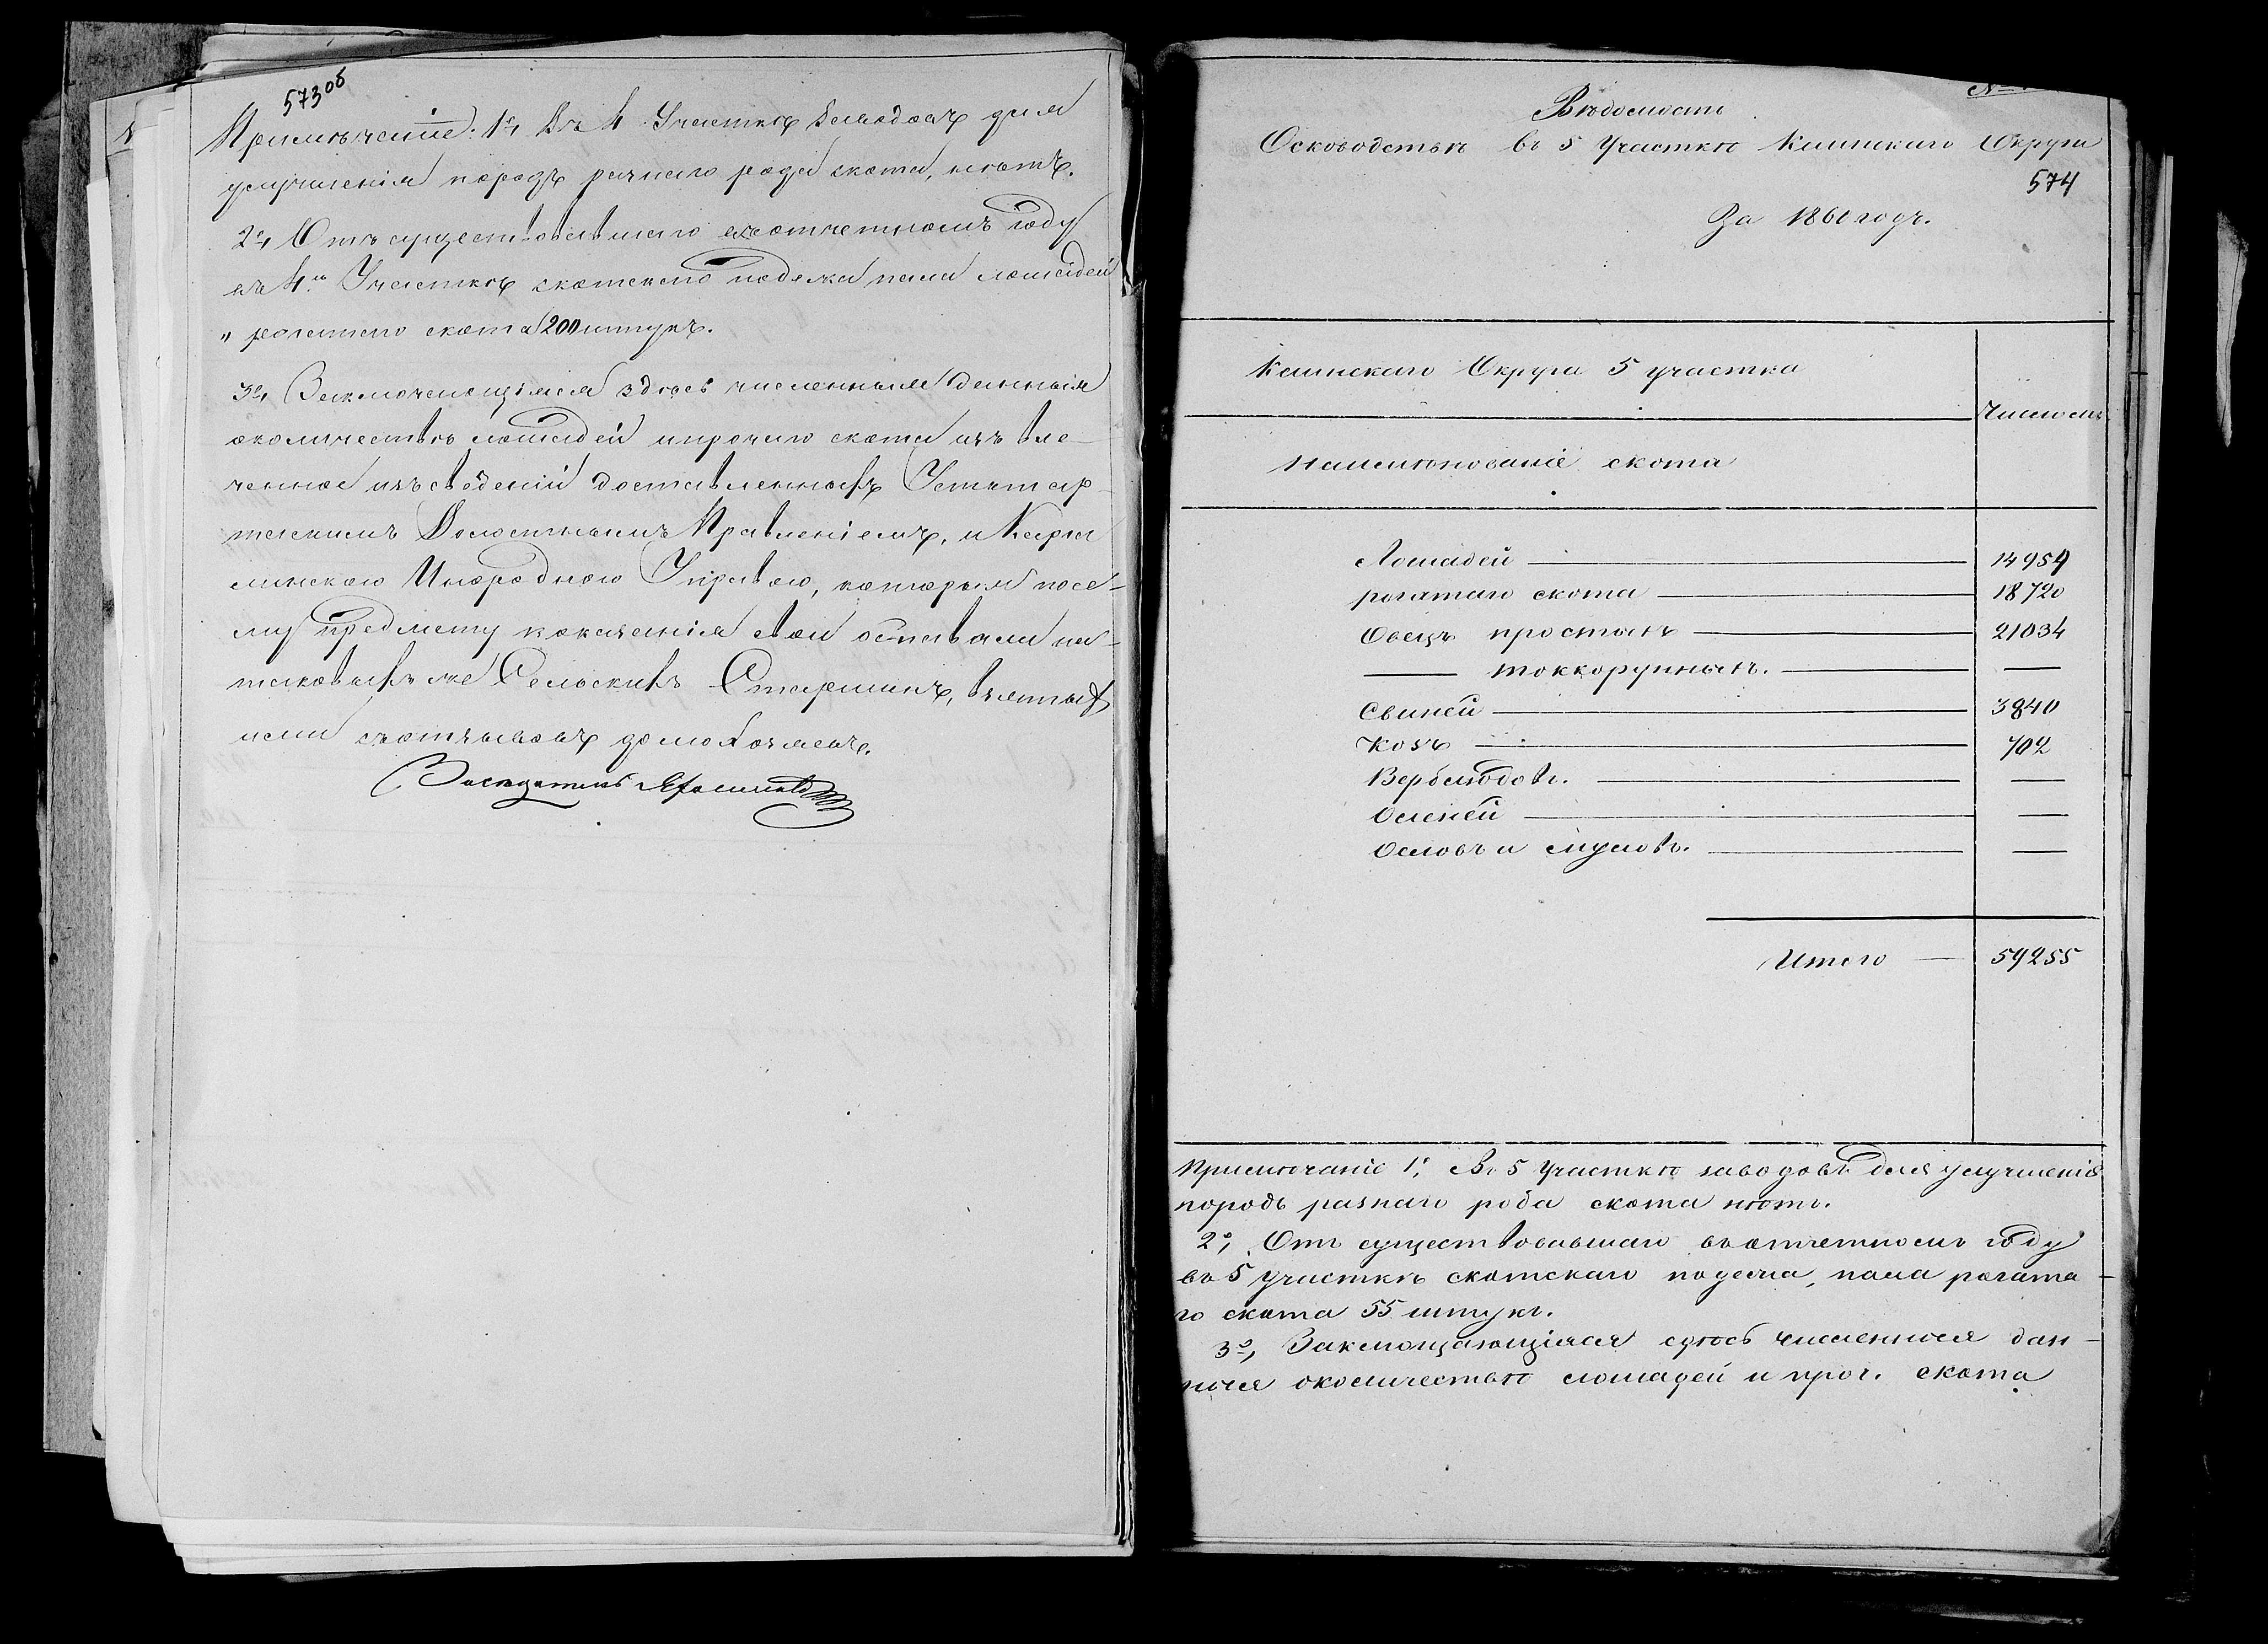 573об
Примѣчаніе: 1е, Въ 4 Участкѣ Заводовъ для
улучшенія породъ разнаго рода скота, нѣтъ.
2е, Отъ существовавшаго въ отчетномъ году
въ 4мъ Участкѣ скотскаго падежа пала лошадей
" рогатаго скота 200 штукъ.
3е, Заключающіяся здѣсь численныя данныя
околичествѣ лошадей и прочаго скота извле-
ченное изъ сведеній доставленныхъ Устьтар-
тасскимъ Волостнымъ Правленіемъ, и Карга
линскою Инородною Управою, которыя по се-
му предмету показанія свои основали на
таковыхъ же Сельскихъ Старшинъ, взятыхъ
ими съ отзывовъ домохозяевъ.
Засѣдатель
Вѣдомость
Оскотоводствѣ въ 5 Участкѣ Каинскаго Округа
574
За 1860 годъ.
Каинскаго Округа 5 участка
Числомъ
Наименованіе скота
Лошадей 14959
рогатаго скота 18720
Овецъ простыхъ 21034
— тонкорунныхъ. —
Свиней 3840
Козъ 702
Верблюдовъ. —
Оленей —
Ословъ и муловъ. —
Итого 59255
Примѣчаніе 1е, Въ 5 Участкѣ заводовъ для улучшенія
породъ разнаго рода скота нѣтъ.
2е, Отъ существовавшаго въ отчетномъ году
въ 5 участкѣ скотскаго падежа, пала рогата-
го скота 55 штукъ.
3е, Заключающіяся сдѣсь численныя дан-
ныя околичествѣ лошадей и проч. скота